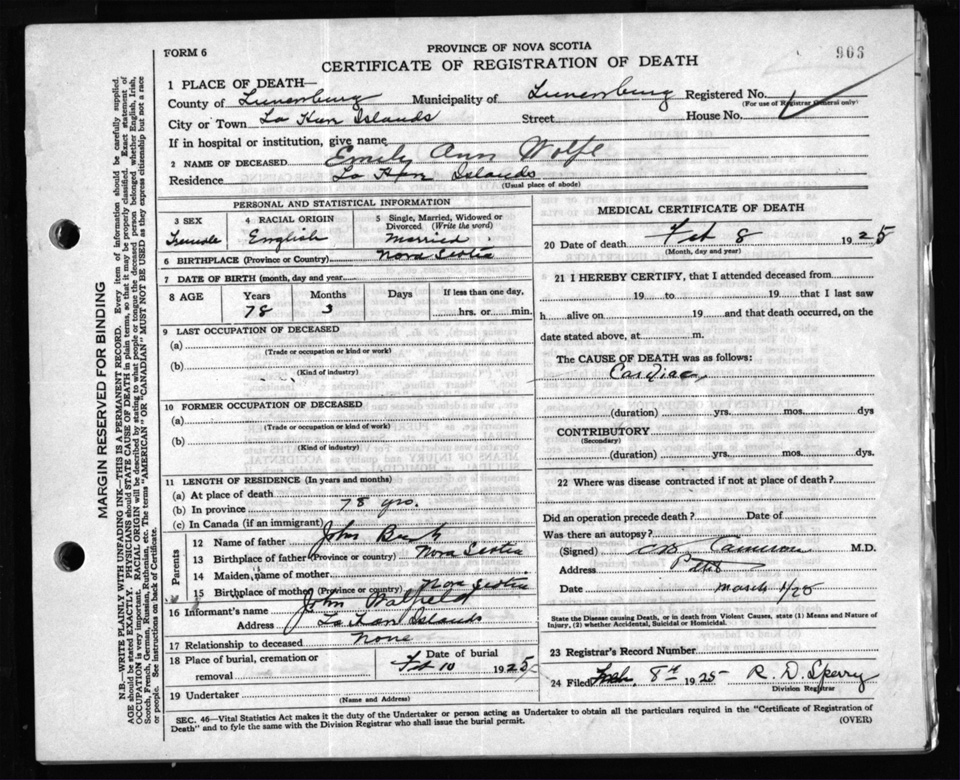 FORM 6
PROVINCE OF NOVA SCOTIA
903
CERTIFICATE OF REGISTRATION OF DEATH
1 PLACE OF DEATH—
County of Lunenburg Municipality of Lunenburg Registered No.
(For use of Registrar General only)
City or Town La Have Islands Street House No.
If in hospital or institution, give name
2 NAME OF DECEASED Emily Ann Wolfe
Residence La Have Islands
(Usual place of abode)
PERSONAL AND STATISTICAL INFORMATION
3 SEX 4 RACIAL ORIGIN 5 Single, Married, Widowed or Divorced (Write the word)
Female English Married
6 BIRTHPLACE (Province or Country) Nova Scotia
7 DATE OF BIRTH (month, day and year)
8 AGE Years Months Days If less than one day,
78 3 hrs. or min.
9 LAST OCCUPATION OF DECEASED
(a)
(Trade or occupation or kind or work)
(b)
(Kind of industry)
10 FORMER OCCUPATION OF DECEASED
(a)
(Trade or occupation or kind of work)
(b)
(Kind of industry)
11 LENGTH OF RESIDENCE (In years and months)
(a) At place of death
(b) In province 78 yrs.
(c) In Canada (if an immigrant)
Parents
12 Name of father John
13 Birthplace of father (Province or country) Nova Scotia
14 Maiden name of mother
15 Birthplace of mother (Province or country) Nova Scotia
16 Informant's name John
Address La Have Islands
17 Relationship to deceased None
18 Place of burial, cremation or Date of burial
removal Feb 10 1925
19 Undertaker
(Name and Address)
MEDICAL CERTIFICATE OF DEATH
20 Date of death Feb 8 1925
(Month, day and year)
21 I HEREBY CERTIFY, that I attended deceased from
19 to 19 that I last saw
h alive on 19 and that death occurred, on
date stated above, at m.
The CAUSE OF DEATH was as follows:
Cardiac
(duration) yrs. mos. dys
CONTRIBUTORY
(Secondary)
(duration) yrs. mos. dys.
22 Where was disease contracted if not at place of death?
Did an operation precede death? Date of
Was there an autopsy?
(Signed) Cameron M.D.
Address
Date March 1/25
State the Disease causing Death, or in death from Violent Causes, state (1) Means and Nature of
Injury, (2) whether Accidental, Suicidal or Homicidal.
23 Registrar's Record Number
24 Filed 8th 1925 R. D. Sperry
Division Registrar
SEC. 46—Vital Statistics Act makes it the duty of the Undertaker or person acting as Undertaker to obtain all the particulars required in the "Certificate of Registration of
Death" and to fyle the same with the Division Registrar who shall issue the burial permit.
(OVER)
MARGIN RESERVED FOR BINDING
N.B.—WRITE PLAINLY WITH UNFADING INK—THIS IS A PERMANENT RECORD. Every item of information should be carefully supplied.
AGE should be stated EXACTLY. PHYSICIANS should STATE CAUSE OF DEATH in plain terms, so that it may be properly classified. Exact statement of
OCCUPATION is very important. RACIAL ORIGIN will be described by stating to what people or tongue the deceased person belonged whether English, Irish,
Scotch, French, German, Russian, Ruthenian, etc. The terms "AMERICAN" OR "CANADIAN" MUST NOT BE USED as they express citizenship but not a race
or people. See instructions on back of Certificate.